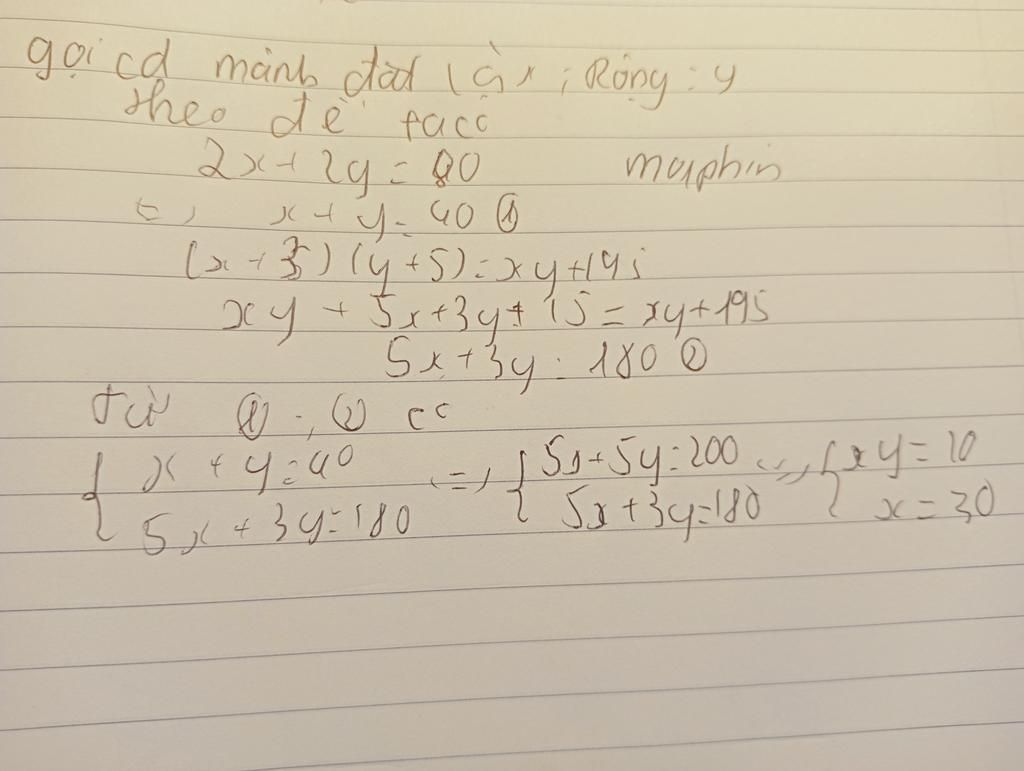 gọi cd mảnh đất là x ; Rộng : y
theo đề ta cc
2x + 2y = 80 marphin
<=> x + y = 40 ①
(x + 3) (y + 5) = xy + 195
xy + 5x + 3y + 15 = xy + 195
5x + 3y = 180 ②
từ ①, ② cc
{ x + y = 40 <=> { 5x + 5y = 200 <=> { xy = 10
5x + 3y = 180 5x + 3y = 180 x = 30